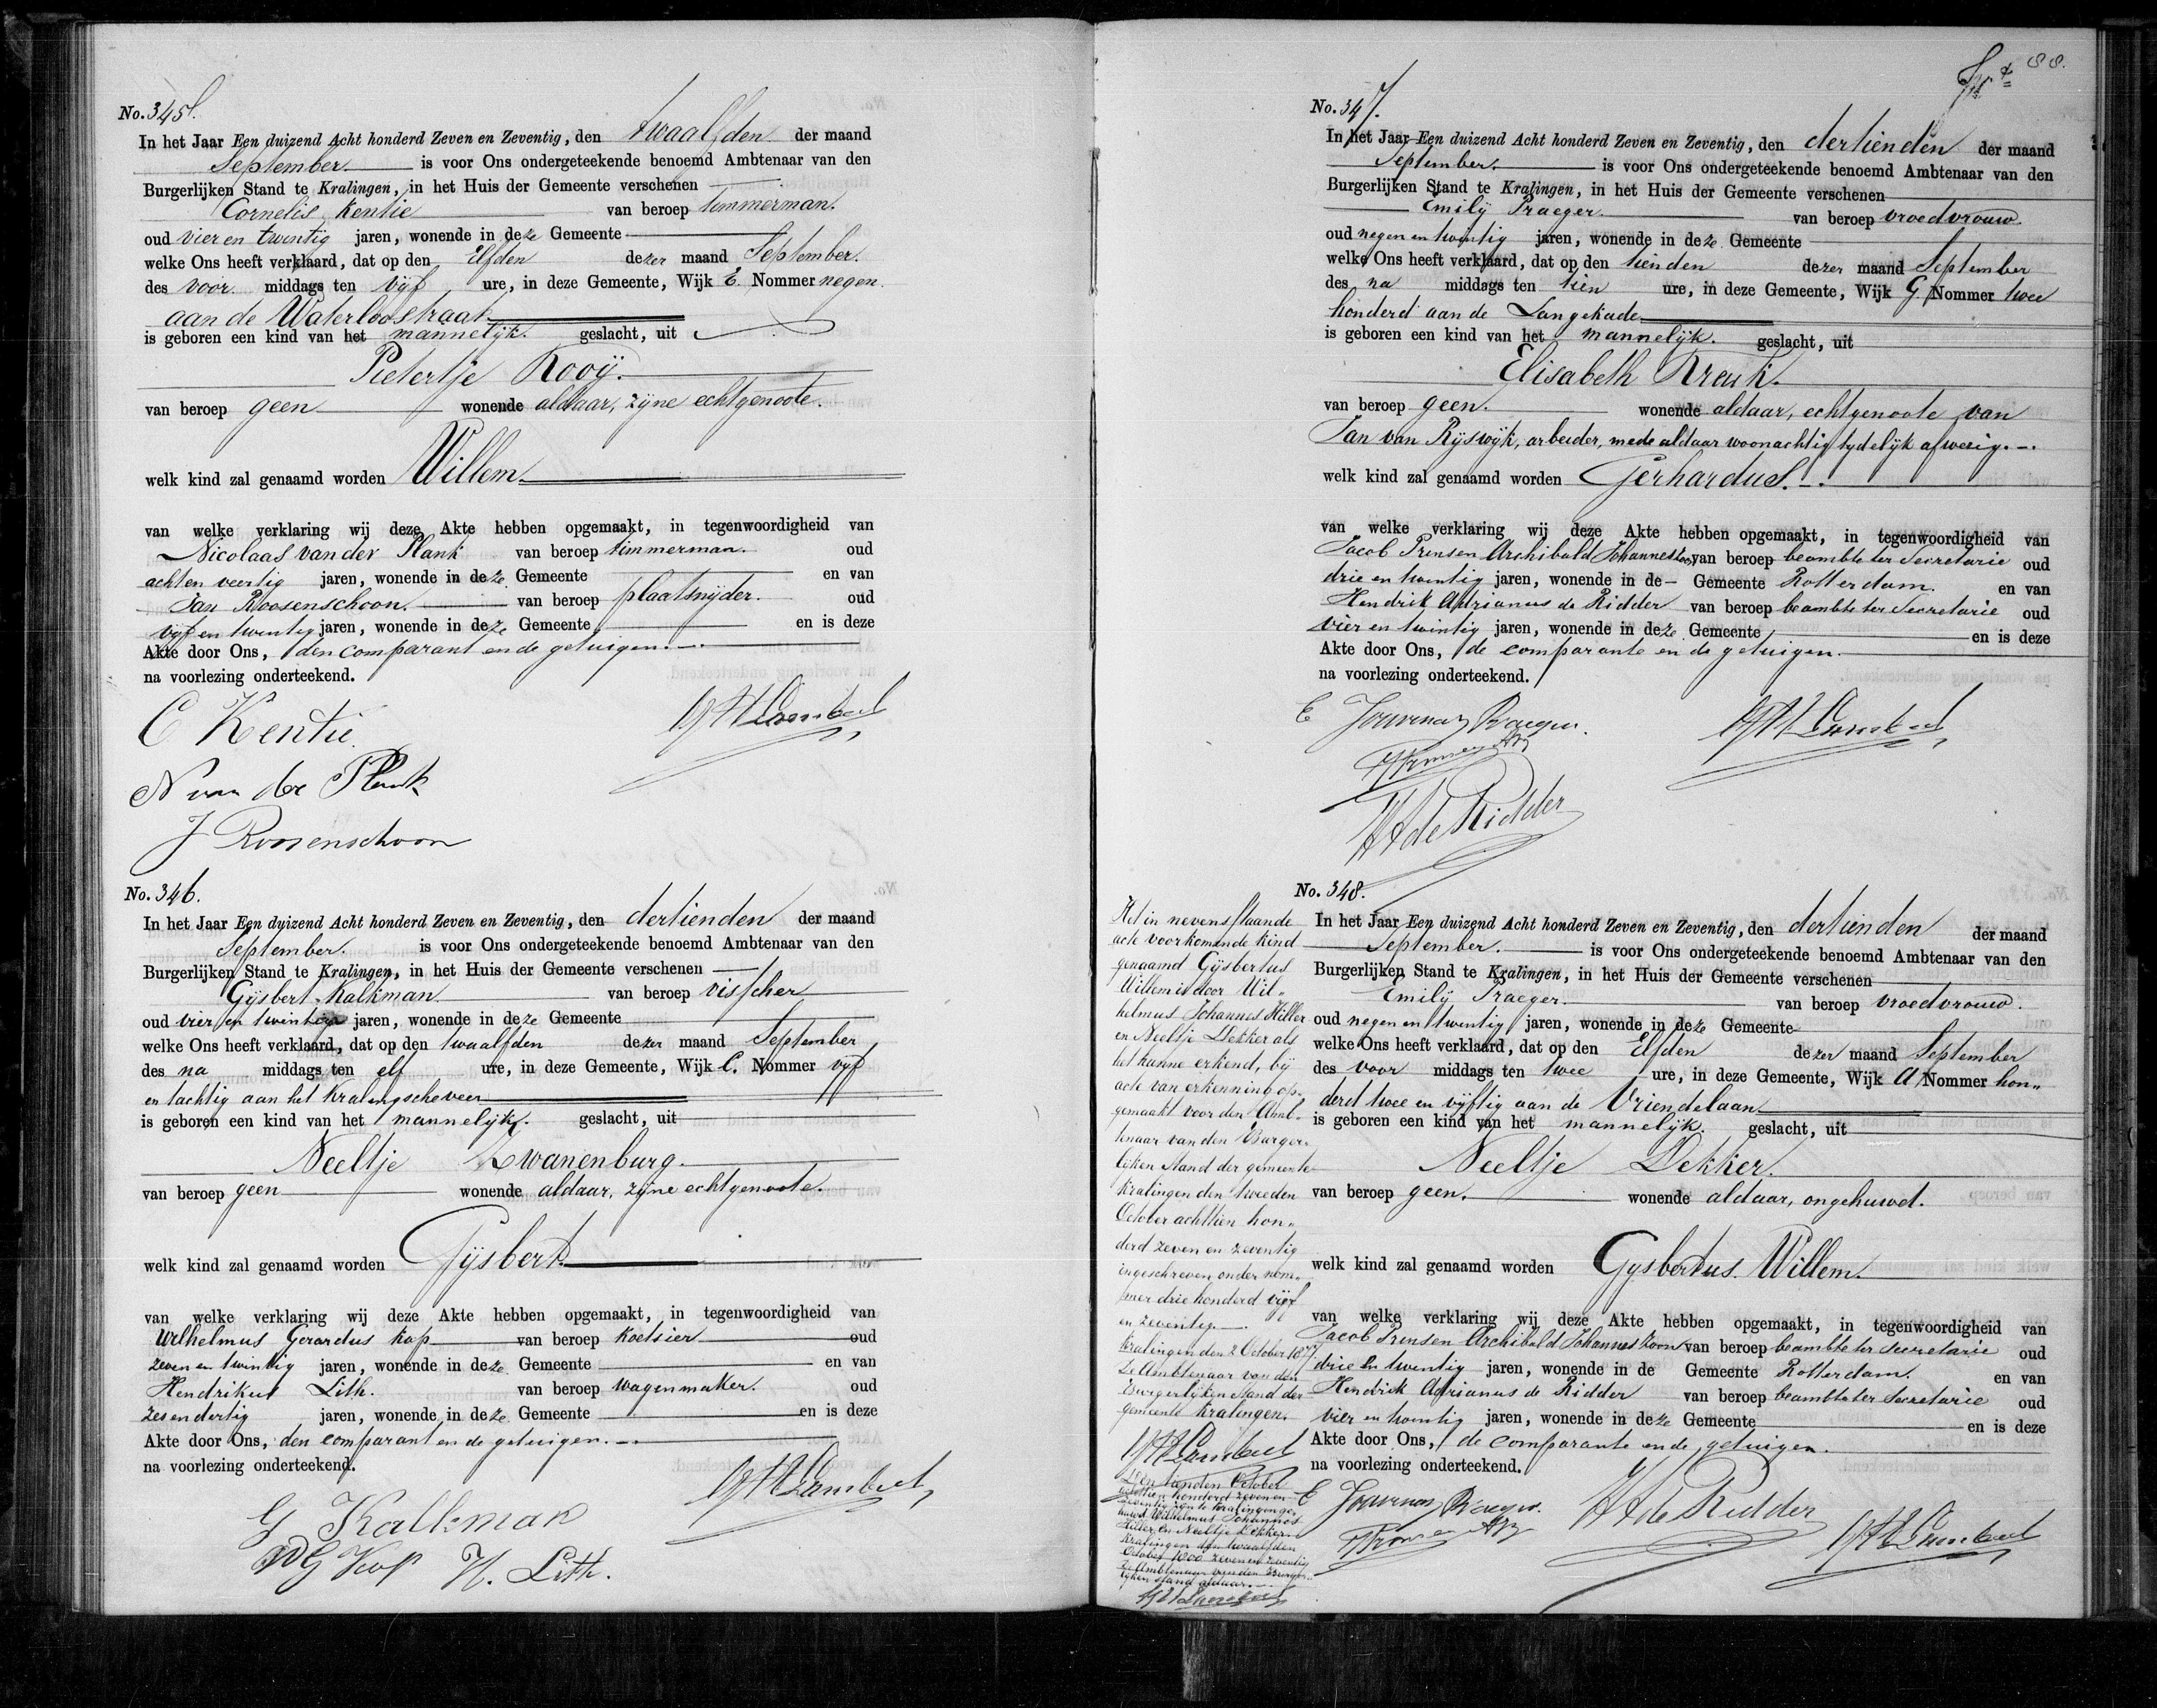 No. 345.
In het Jaar Een duizend Acht honderd Zeven en Zeventig, den twaalfden der maand
September. is voor Ons ondergeteekende benoemd Ambtenaar van den
Burgerlijken Stand te Kralingen, in het Huis der Gemeente verschenen
Cornelis Kentie van beroep timmerman.
oud vier en twintig jaren, wonende in deze Gemeente
welke Ons heeft verklaard, dat op den Elfden dezer maand September.
des voor middags ten vijf ure, in deze Gemeente, Wijk E. Nommer negen.
aan de Waterloostraat
is geboren een kind van het mannelijk. geslacht, uit
Pietertje Rooij.
van beroep geen wonende aldaar, zijne echtgenoote.
welk kind zal genaamd worden Willem.
van welke verklaring wij deze Akte hebben opgemaakt, in tegenwoordigheid van
Nicolaas van der Plank van beroep timmerman. oud
acht en veertig jaren, wonende in deze Gemeente en van
Jan Roosenschoon. van beroep plaatsnijder. oud
vijf en twintig jaren, wonende in deze Gemeente en is deze
Akte door Ons, den comparant en de getuigen.
na voorlezing onderteekend.
C Kentie
N van der Plank
J Roosenschoon
No. 346.
In het Jaar Een duizend Acht honderd Zeven en Zeventig, den dertienden der maand
September. is voor Ons ondergeteekende benoemd Ambtenaar van den
Burgerlijken Stand te Kralingen, in het Huis der Gemeente verschenen
Gijsbert Kalkman van beroep visscher
oud vier en twintig jaren, wonende in deze Gemeente
welke Ons heeft verklaard, dat op den twaalfden dezer maand September
des na middags ten elf ure, in deze Gemeente, Wijk C. Nommer vijf
en tachtig aan het Kralingscheveer
is geboren een kind van het mannelijk. geslacht, uit
Neeltje Zwanenburg.
van beroep geen wonende aldaar, zijne echtgenoote.
welk kind zal genaamd worden Gijsbert.
van welke verklaring wij deze Akte hebben opgemaakt, in tegenwoordigheid van
Wilhelmus Gerardus Kop van beroep Koetsier oud
zeven en twintig jaren, wonende in deze Gemeente en van
Hendrikus Lith. van beroep wagenmaker. oud
zes en dertig jaren, wonende in deze Gemeente en is deze
Akte door Ons, den comparant en de getuigen.
na voorlezing onderteekend.
G Kalkman
WG Kop H. Lith.
88.
No. 347.
In het Jaar Een duizend Acht honderd Zeven en Zeventig, den dertienden der maand
September. is voor Ons ondergeteekende benoemd Ambtenaar van den
Burgerlijken Stand te Kralingen, in het Huis der Gemeente verschenen
Emilij Praeger. van beroep vroedvrouw
oud negen en twintig jaren, wonende in deze Gemeente
welke Ons heeft verklaard, dat op den tienden dezer maand September
des na middags ten tien ure, in deze Gemeente, Wijk G. Nommer twee
honderd aan de Langekade
is geboren een kind van het mannelijk. geslacht, uit
Elisabeth Kreuk.
van beroep geen. wonende aldaar, echtgenoote van
Jan van Rijswijk, arbeider, mede aldaar woonachtig tydelijk afwezig.
welk kind zal genaamd worden Gerhardus.
van welke verklaring wij deze Akte hebben opgemaakt, in tegenwoordigheid van
Jacob Prensen Archibald Johanneszoon van beroep beambte ter Secretarie oud
drie en twintig jaren, wonende in de Gemeente Rotterdam. en van
Hendrik Adrianus de Ridder van beroep beambte ter Secretarie oud
vier en twintig jaren, wonende in deze Gemeente en is deze
Akte door Ons, de comparante en de getuigen.
na voorlezing onderteekend.
HA de Ridder
No. 348.
In het Jaar Een duizend Acht honderd Zeven en Zeventig, den dertienden der maand
September. is voor Ons ondergeteekende benoemd Ambtenaar van den
Burgerlijken Stand te Kralingen, in het Huis der Gemeente verschenen
Emilij Praeger. van beroep vroedvrouw.
oud negen en twintig jaren, wonende in deze Gemeente
welke Ons heeft verklaard, dat op den Elfden dezer maand September
des voor middags ten twee ure, in deze Gemeente, Wijk A Nommer hon„
derd twee en vijftig aan de Vriendelaan
is geboren een kind van het mannelijk. geslacht, uit
Neeltje Dekker.
van beroep geen. wonende aldaar, ongehuwd.
welk kind zal genaamd worden Gysbertus Willem.
van welke verklaring wij deze Akte hebben opgemaakt, in tegenwoordigheid van
Jacob Prensen Archibald Johanneszoon van beroep beambte ter Secretarie oud
drie en twintig jaren, wonende in de Gemeente Rotterdam. en van
Hendrik Adrianus de Ridder van beroep beambte ter Secretarie oud
vier en twintig jaren, wonende in deze Gemeente en is deze
Akte door Ons, de comparante en de getuigen.
na voorlezing onderteekend.
HA de Ridder
Het in nevenstaande
acte voorkomende kind
genaamd Gijsbertus
Willem is door Wil„
helmus Johannes Hiller
en Neeltje Dekker als
het hunne erkend, bij
acte van erkenning op„
gemaakt voor den Amb„
tenaar van den Burger„
lijken Stand der gemeente
Kralingen den tweeden
October achttien hon„
derd zeven en zeventig
ingeschreven onder nom„
mer drie honderd vijf
en zeventig.
Kralingen den 2 October 1877
De Ambtenaar van den
Burgerlijken Stand der
gemeente Kralingen.
Den tienden October
achttien honderd zeven en
zeventig zijn te Kralingen ge„
huwd Wilhelmus Johannes
Hiller en Neeltje Dekker.
Kralingen den twaalfden
October 1800 zeven en zeventig
De Ambtenaar van den Burger„
lijken Stand aldaar